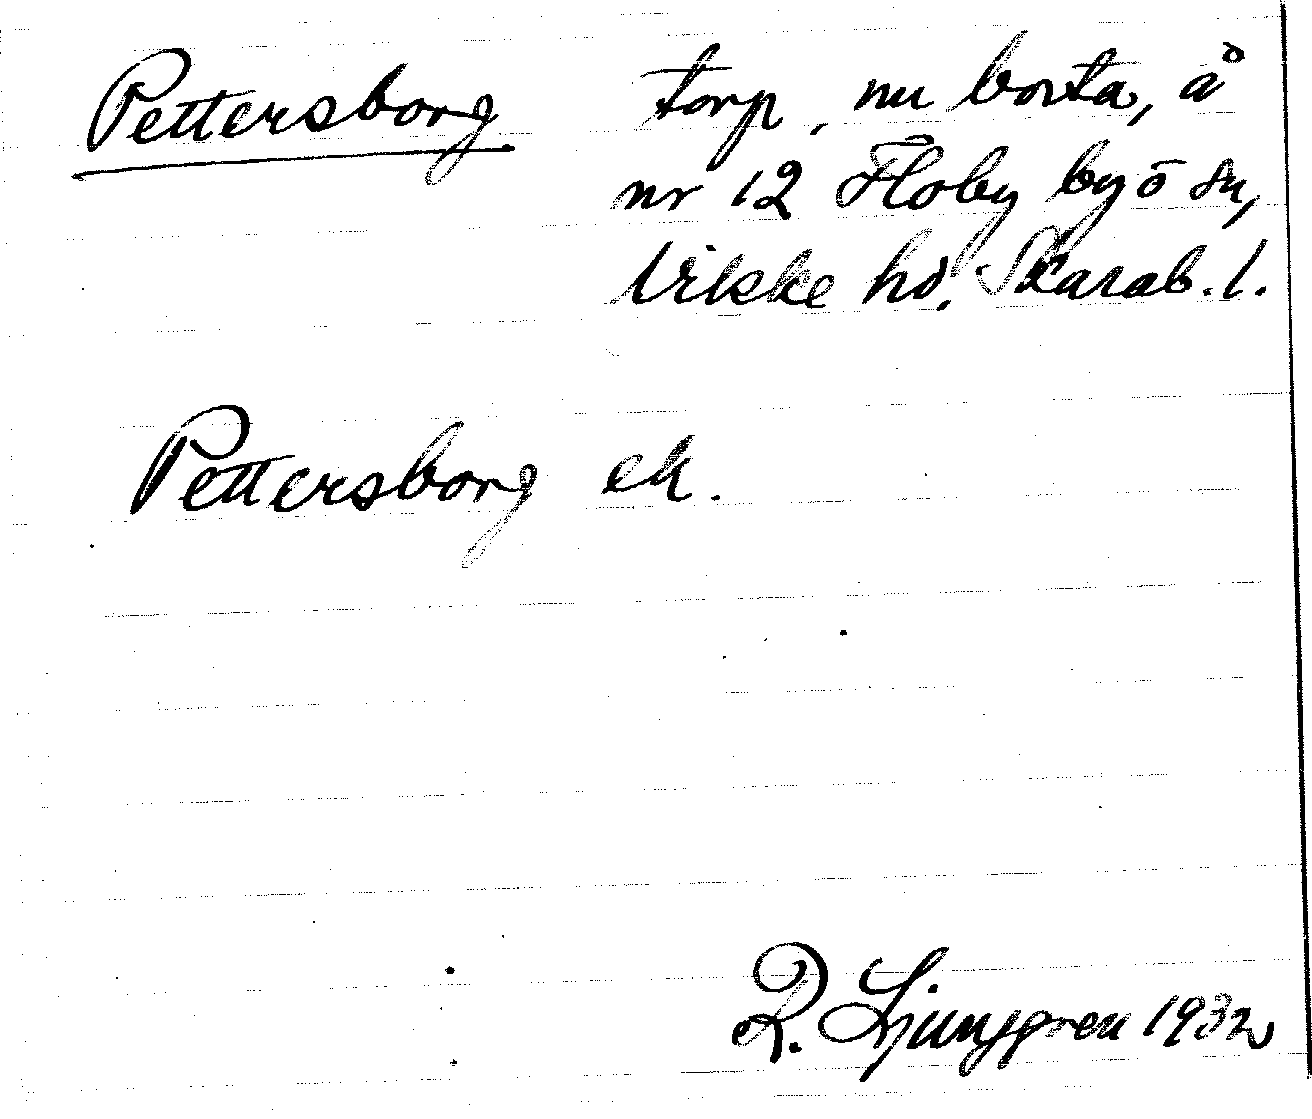 Pettersborg torp, nu borta, å
nr 12 Floby by o sn,
Vilske hd, Skarab. l.
Pettersborg ek.
R. Ljunggren 1932